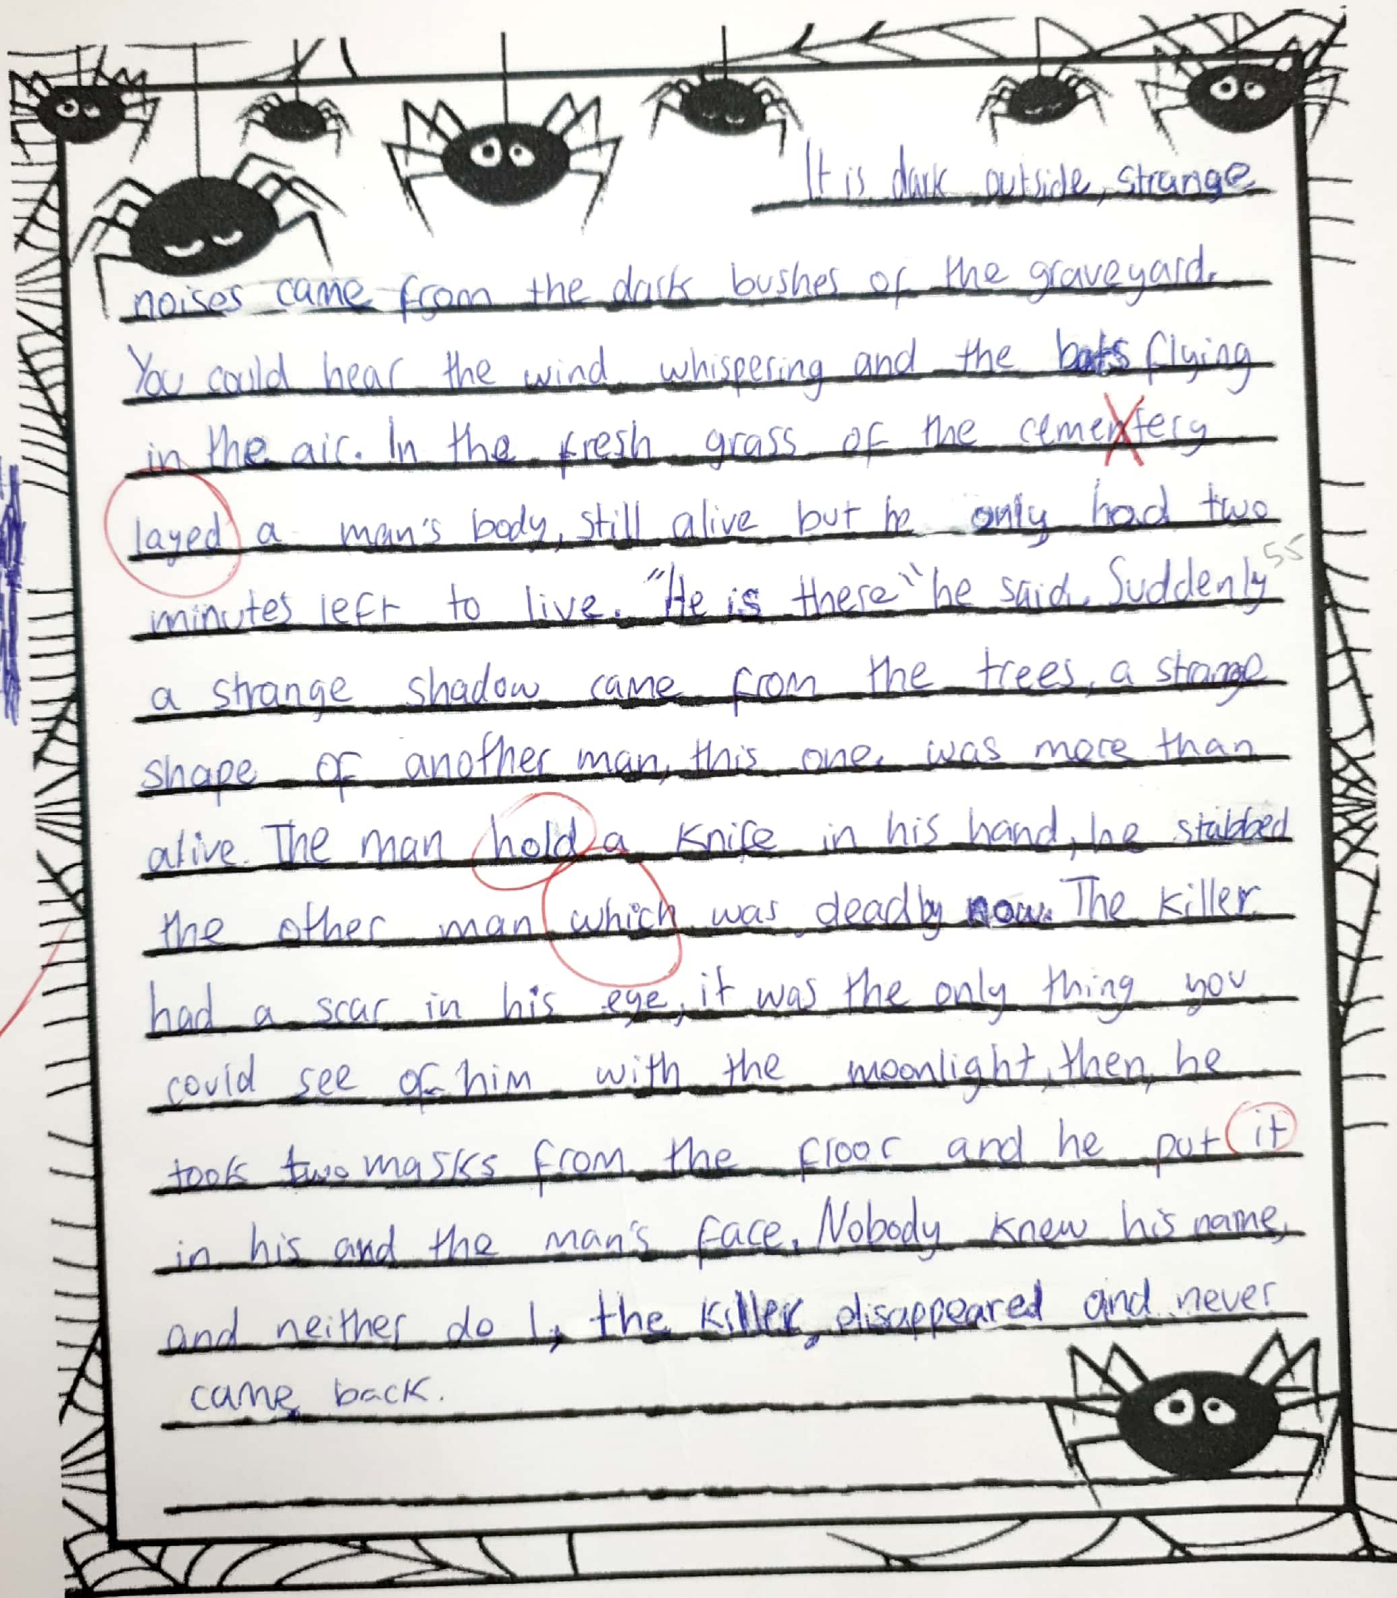 It is dark outside, strange
noises came from the dark bushes of the graveyard.
You could hear the wind whispering and the bats flying
in the air. In the fresh grass of the cementery
layed a man's body, still alive but he only had two
55
minutes left to live. "He is there" he said. Suddenly
a strange shadow came from the trees, a strange
shape of another man, this one was more than
alive. The man hold a knife in his hand, he stabbed
the other man which was deadly now. The killer
had a scar in his eye, it was the only thing you
could see of him with the moonlight, then, he
took two masks from the floor and he put it
in his and the man's face. Nobody knew his name,
and neither do I, the killer, disappeared and never
came back.